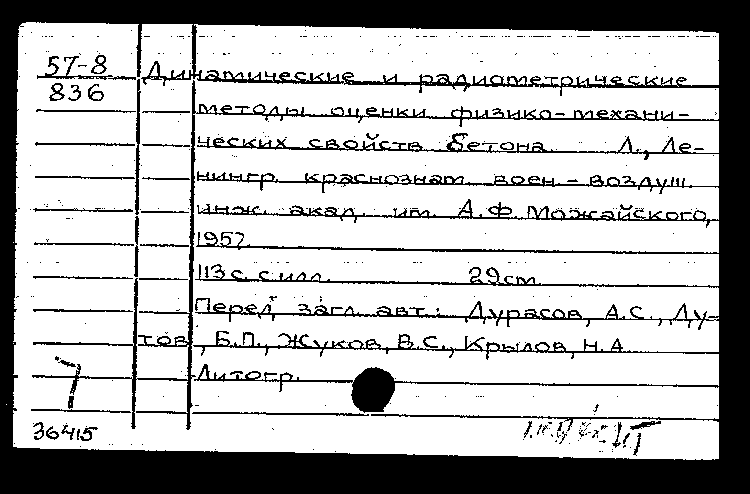 57-8
836
Динамические и радиометрические
методы оценки физико-механи-
ческих свойств бетона. Л., Ле-
нингр. краснознам. воен.-воздуш.
инж. акад. им. А.Ф. Можайского,
1957.
113 с. с илл. 29 см.
Перед загл. авт.: Дурасов, А.С., Ду-
тов, Б.П., Жуков, В.С., Крылов, Н.А.
Литогр.
7
36415